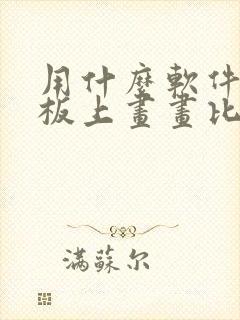 用什麼軟件
板上畫畫比
滿蘇尔